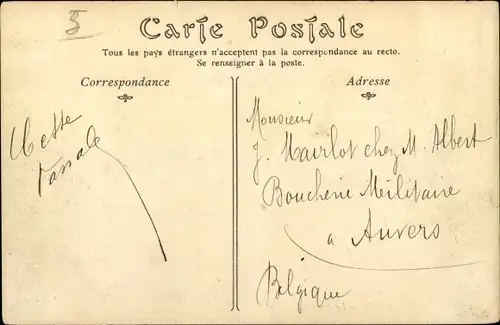 5
Carte Postale
Tous les pays étrangers n'acceptent pas la correspondance au recto.
Se renseigner à la poste.
Correspondance
Adresse
Monsieur
J. Mairlot chez M. Albert
Boucherie Militaire
a Anvers
Belgique